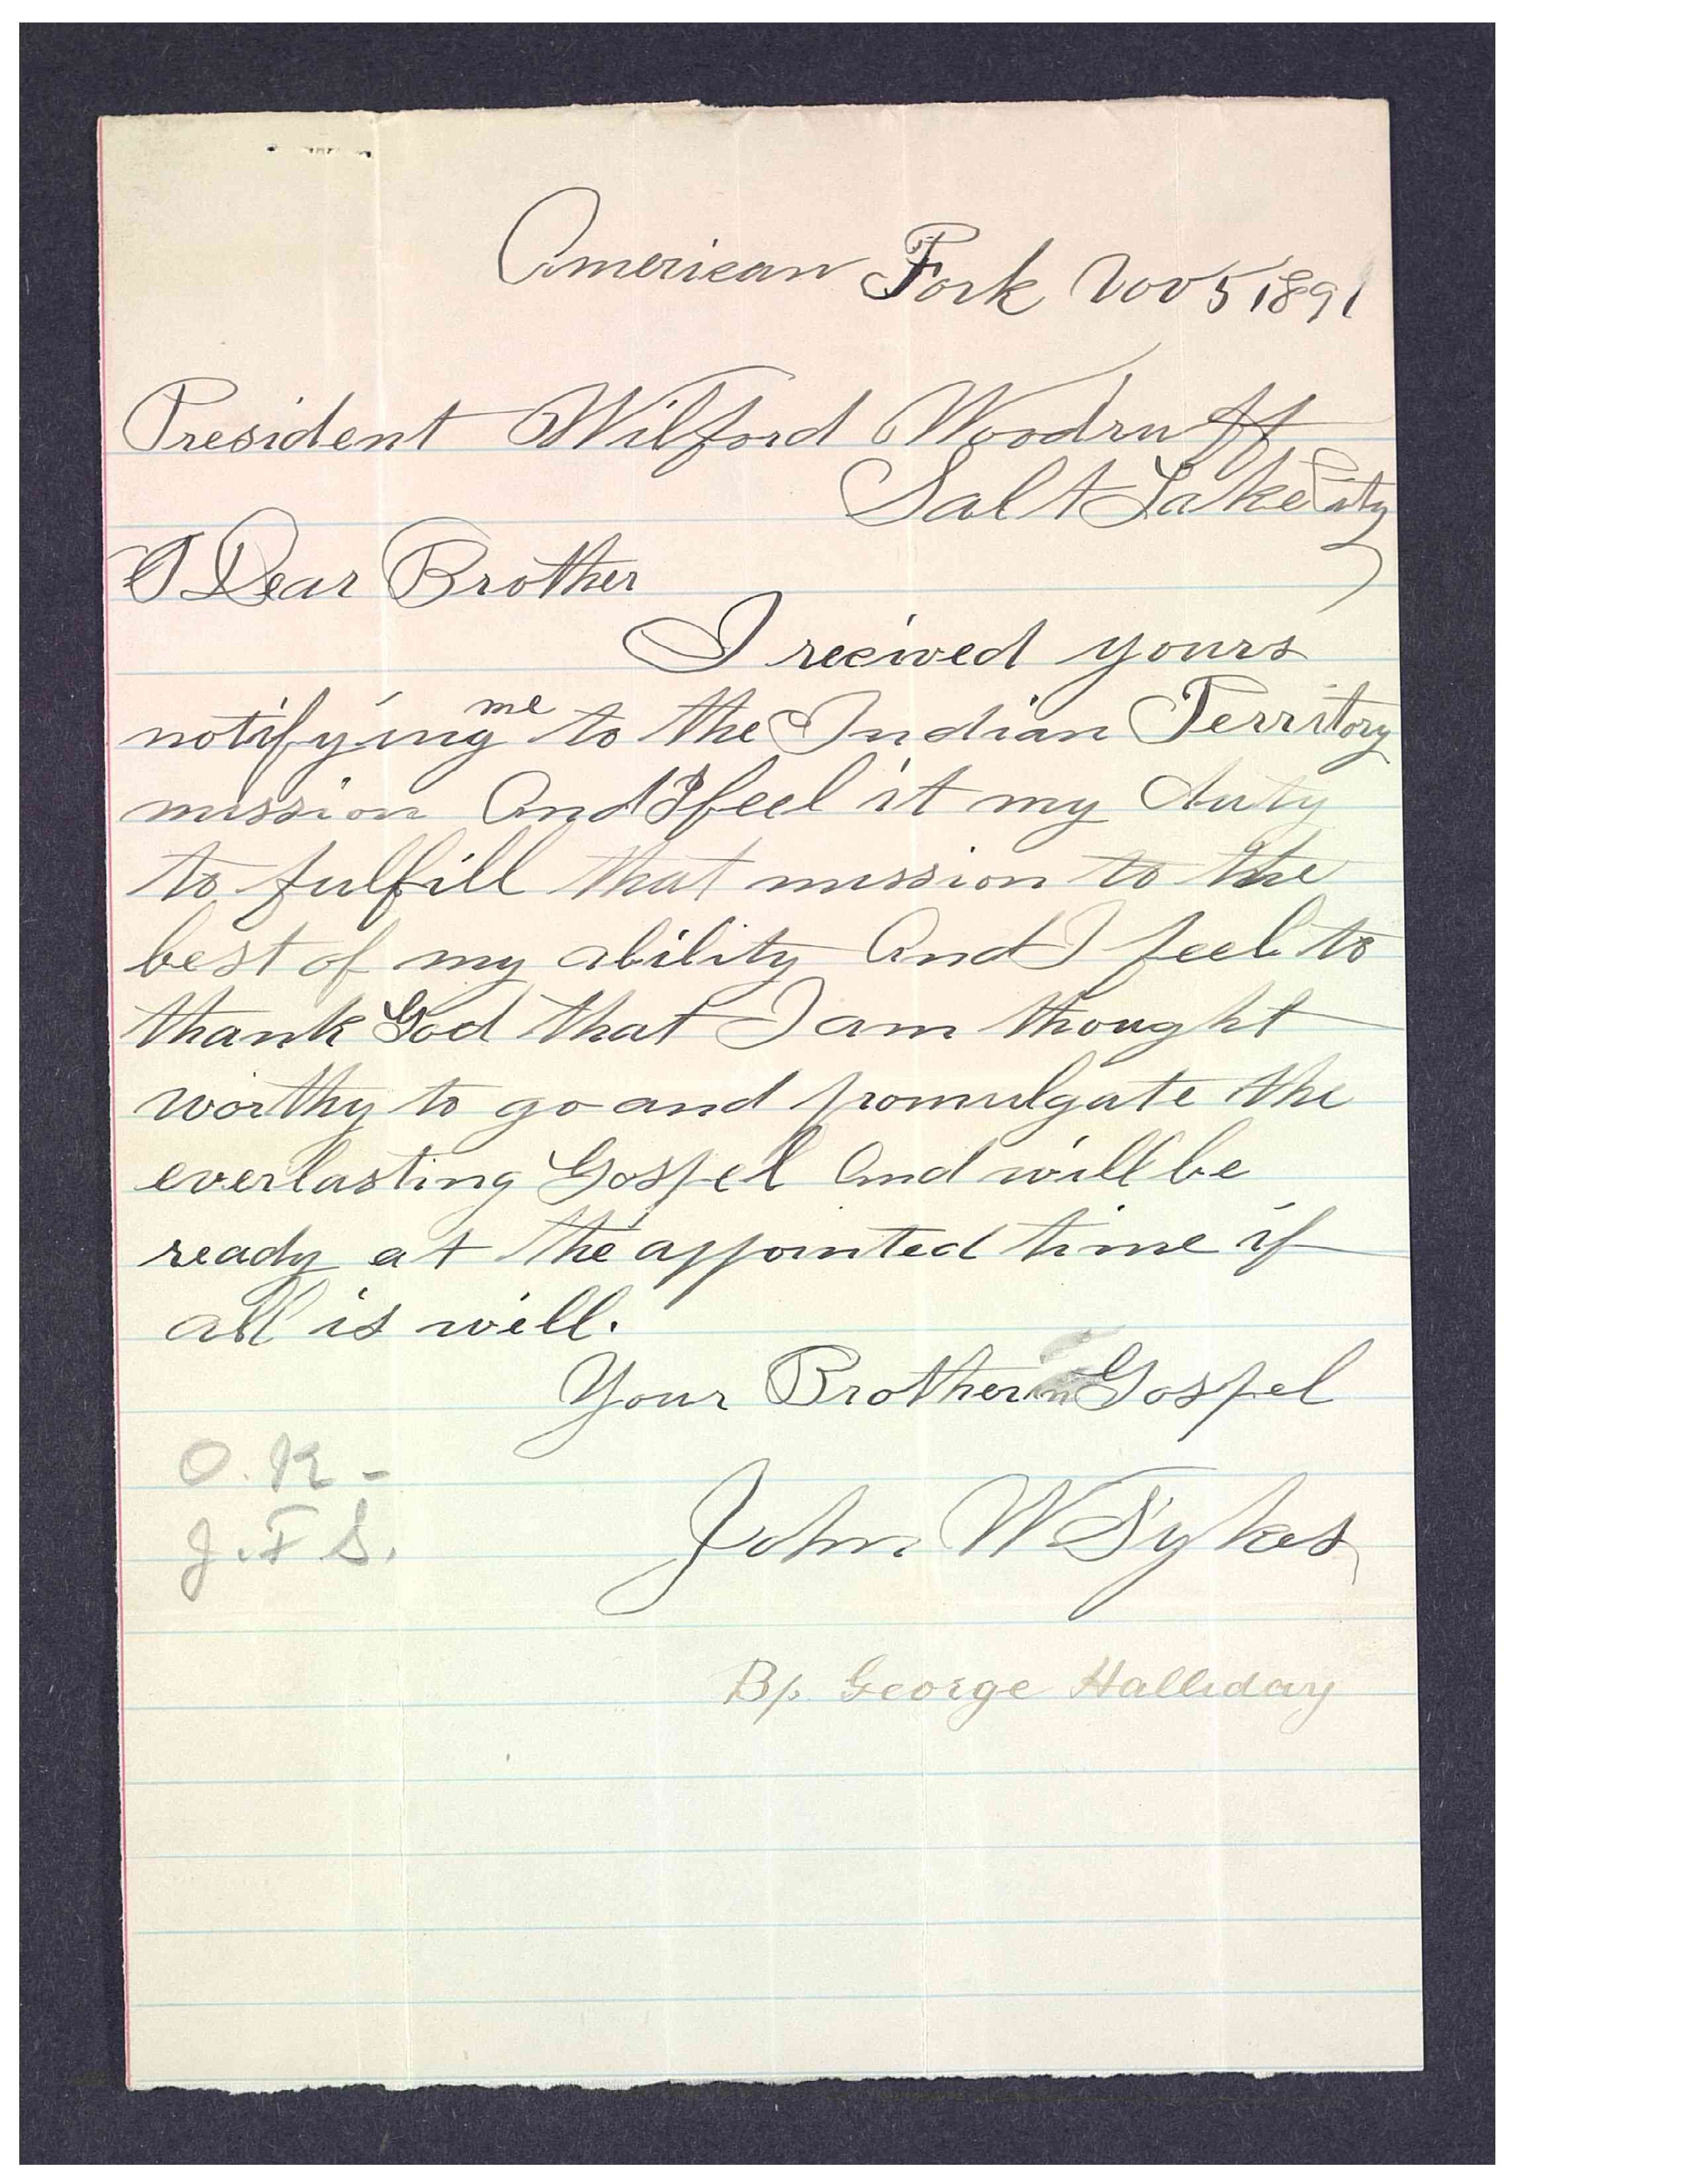 American Fork Nov 5 1891
President Wilford Woodruff
Salt Lake City
Dear Brother
I recived yours
notifying me to the Indian Territory
mission And I feel it my duty
to fulfill that mission to the
best of my ability And I feel to
thank God that I am thought
worthy to go and promulgate the
everlasting Gospel And will be
ready at the appointed time if
all is will.
Your Brother in Gospel
O.K-
John W Sykes
J.F S.
Bp. George Halliday